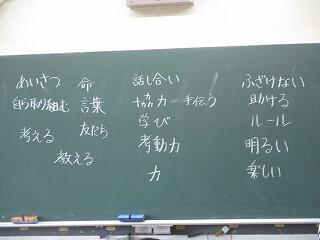 あいさつ
命
自ら取り組む
言葉
考える
友だち
教える
話し合い
協力=手伝う
学び
考動力
力
ふざけない
助ける
ルール
明るい
楽しい